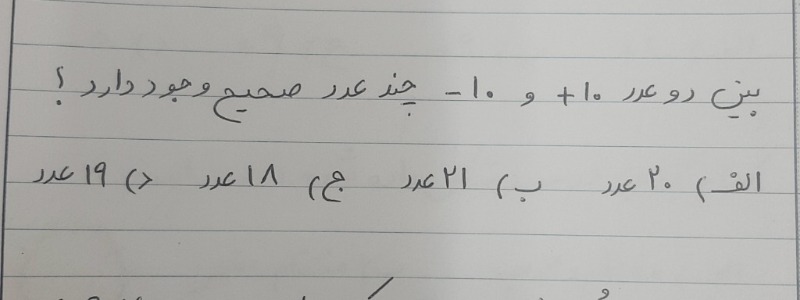 بین دو عدد ۱۰+ و ۱۰- چند عدد صحیح وجود دارد ؟
الف) ۲۰ عدد ب) ۲۱ عدد ج) ۱۸ عدد د) ۱۹ عدد